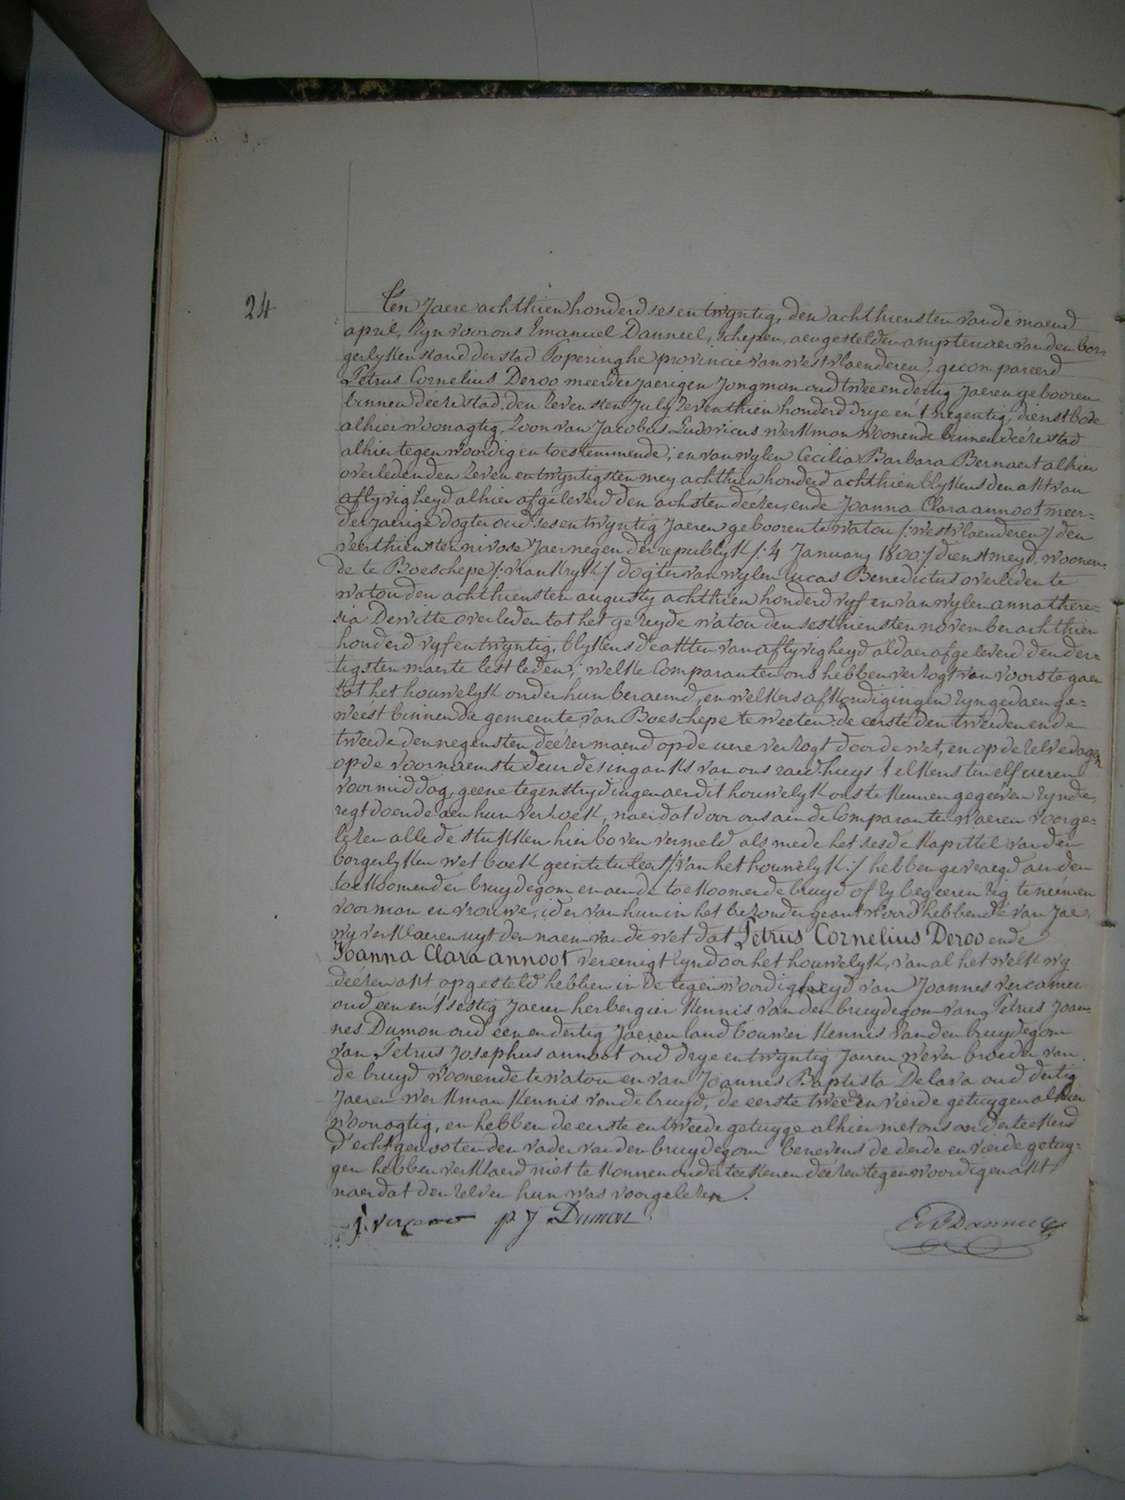 24
Ten Jaere achthien honderd ses en twyntig, den achthiensten van de maend
april, zyn voor ons Emanuel Danneel, schepen, aengestelden amptenaer van den bor-
gerlyken stand der stad Poperinghe provincie van westvlaenderen, gecompareerd
Petrus Cornelius Deroo meerderjaerigen Jongman oud twee en dertig Jaeren gebooren
binnen deeze stad den zevensten July zeventhien honderd drye en 't negentig, dienstbode
alhier woonagtig, zoon van Jacobus Ludovicus werkman woonende binnen deeze stad
alhier tegenwoordig en toestemmende, en van wylen Cecilia Barbara Bernaert alhier
overleden den zeven en twyntigsten mey achthien honderd achthien blykens den akt van
aflyvigheyd alhier afgeleverd den achsten deezer, ende Joanna Clara annoot meer-
derjaerige dogter oud ses en twyntig Jaeren gebooren te watou /: westvlaenderen :/ den
veerthiensten nivose Jaer negen der republyk /: 4 January 1800 :/ dienstmeyd, woonen-
de te Boeschepe /: vrankryk :/ dogter van wylen Lucas Benedictus overleden te
watou den achthiensten augusty achthien honderd vyf en van wylen anna there-
sia Dewitte overleden tot het gezeyde watou den sesthiensten november achthien
honderd vyf en twyntig, blykens de akten van aflyvigheyd aldaer afgeleverd den der-
tigsten maerte lest leden; welke Comparanten ons hebben verzogt van voorts te gaen
tot het houwelyk onder hun beraemd, en welkers afkondigingen zyn gedaen ge-
weest binnen de gemeente van Boeschepe te weeten: de eerste den tweeden en de
tweede den negensten deezer maend op de uere verzogt door de wet, en op de zelve dagen
op de voornaemste deur des ingank van ons raedhuys telkens ten elf ueren
voormiddag, geene tegenstrydingen aen dit houwelyk ons te kennen gegeeven zynde,
regt doende aen hun verzoek, naer dat door ons aen de Comparanten waeren voorge-
lezen alle de stukken hier boven vermeld als mede het sesde kapittel van den
borgerlyken wetboek geintituleert /: van het houwelyk :/ hebben gevraegd aen den
toekoomenden bruydegom en aen de toekoomende bruyd of zy begeeren zig te neemen
voor man en vrouwe, ider van hun in het bezonder geantwoord hebbende van Jae,
wy verklaeren uyt den naem van de wet dat Petrus Cornelius Deroo ende
Joanna Clara annoot vereenigt zyn door het houwelyk, van al het welk wy
deezen akt opgesteld hebben in de tegenwoordigheyd van Joannes Vercamer
oud een en 't sestig Jaeren herbergier kennis van den bruydegom van Petrus Joan-
nes Dumon oud een en dertig Jaeren landbouwer kennis van den bruydegom
van Petrus Josephus annoot oud drye en twyntig Jaeren wever broeder van
de bruyd woonende te watou en van Joannes Baptista Delava oud dertig
Jaeren werkman kennis van de bruyd, de eerste tweede en vierde getuygen alhier
woonagtig, en hebben de eerste en tweede getuyge alhier met ons onderteekend
d'echtgenooten den vader van den bruydegom benevens de derde en vierde getuy-
gen hebben verklaerd niet te konnen onderteekenen deezen tegenwoordigen akt
naer dat den zelven hun was voorgelezen.
j. vercamer p J Dumon E Danneel